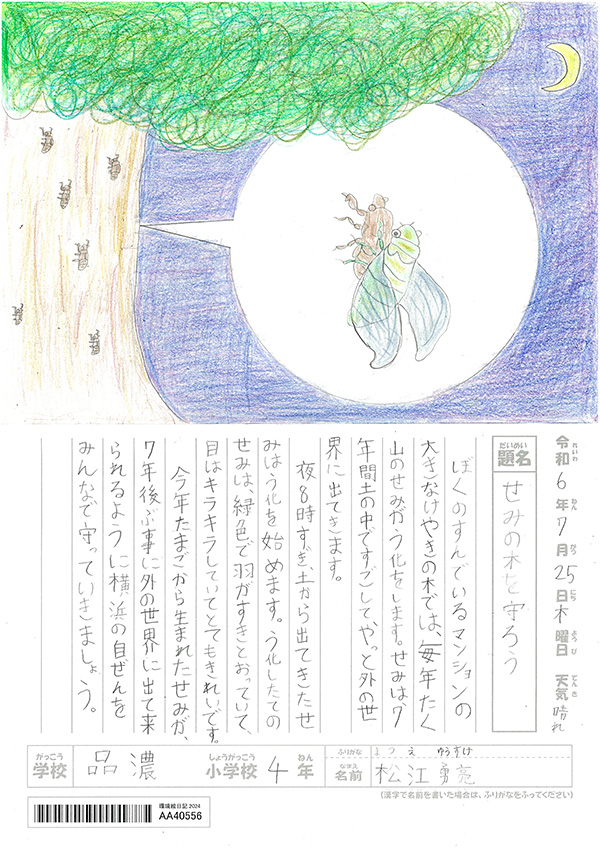 令和6年7月25日木曜日 天気晴れ
れいわ ねん がつ にち ようび てんき
だいめい
題名 せみの木を守ろう
ぼくのすんでいるマンションの
大きなけやきの木では、毎年たく
山のせみがう化をします。せみは7
年間土の中ですごして、やっと外の世
界に出てきます。
夜8時すぎ、土から出てきたせ
みはう化を始めます。う化したての
せみは、緑色で羽がすきとおっていて、
目はキラキラしていてとてもきれいです。
今年たまごから生まれたせみが、
7年後ぶ事に外の世界に出て来
られるように横浜の自ぜんを
みんなで守っていきましょう。
がっこう しょうがっこう ねん
学校 品濃 小学校 4年
ふりがな まつえ ゆうすけ
なまえ
名前 松江勇亮
(漢字で名前を書いた場合は、ふりがなをふってください)
環境絵日記 2024
AA40556